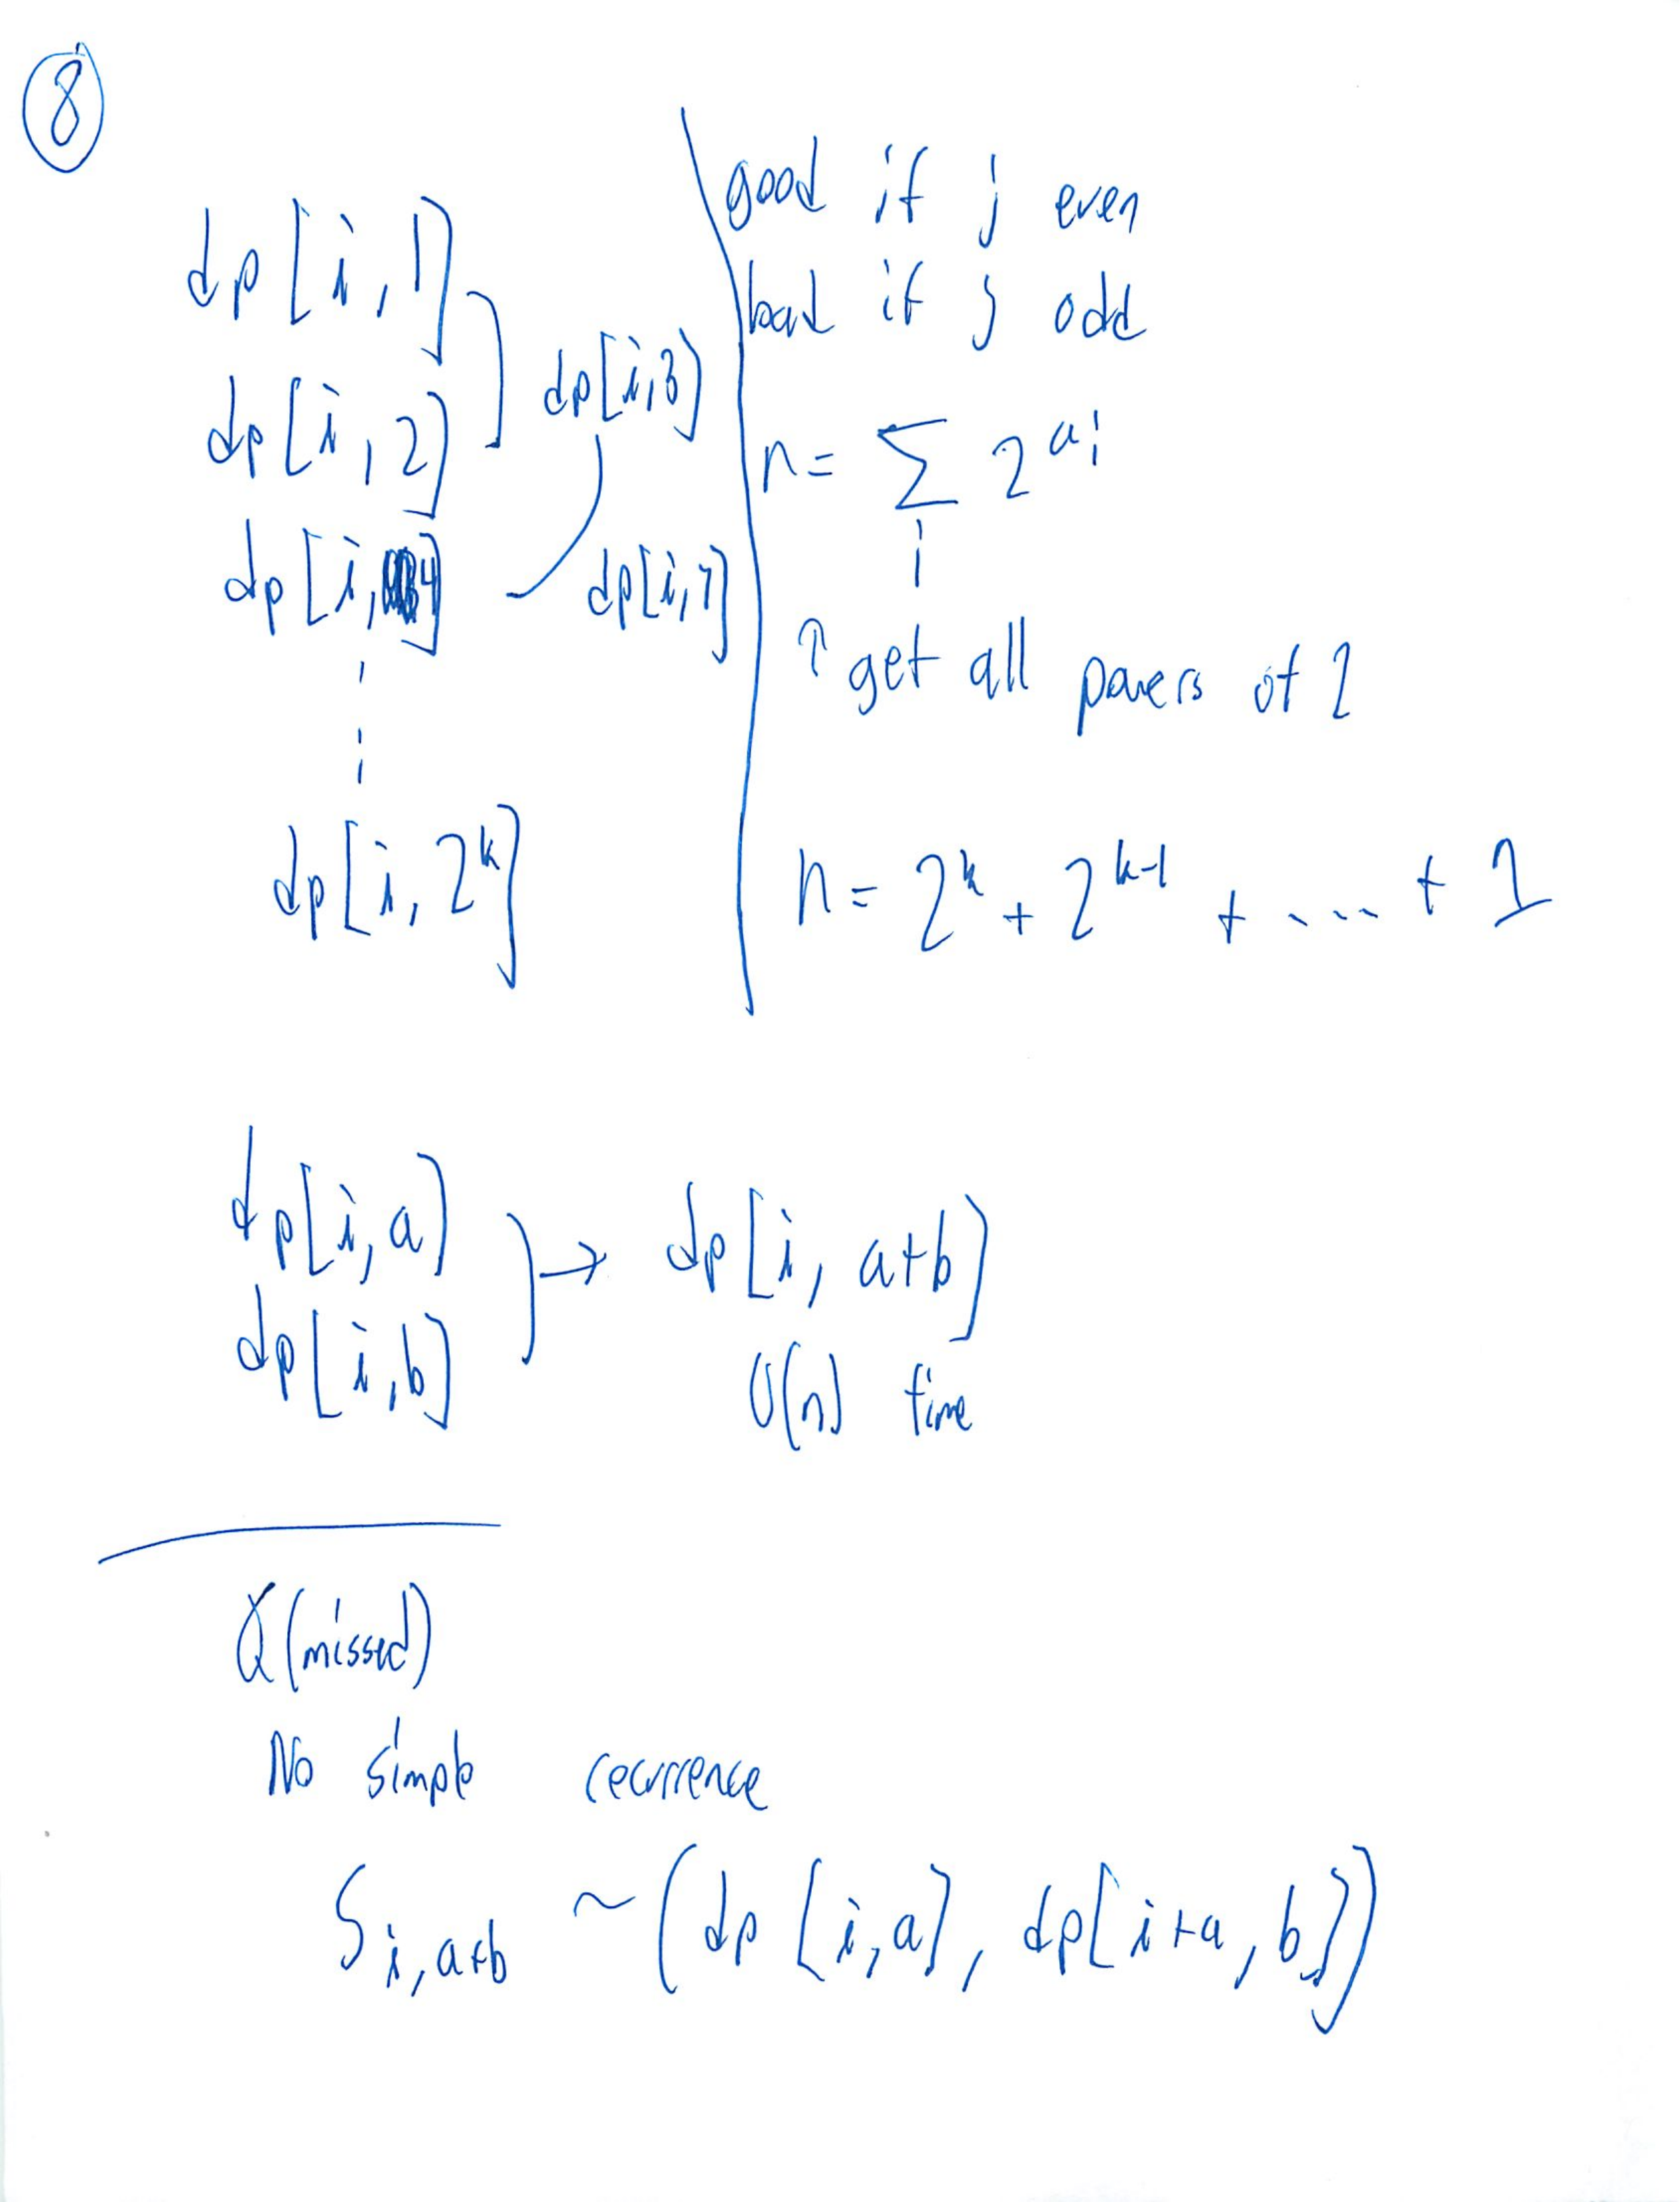 8
dp[i, 1]
dp[i, 2]
dp[i,3]
dp[i, 4]
dp[i,7]
dp[i, 2^k]
good if j even
bad if j odd
n = Σ 2^{a_i}
i
↑ get all powers of 2
n = 2^k + 2^{k-1} + .... + 1
dp[i, a]
dp[i, b]
→ dp[i, a+b]
O(n) time
(missed)
No simple recurrence
S_{i, a+b} ~ (dp[i, a], dp[i+a, b])